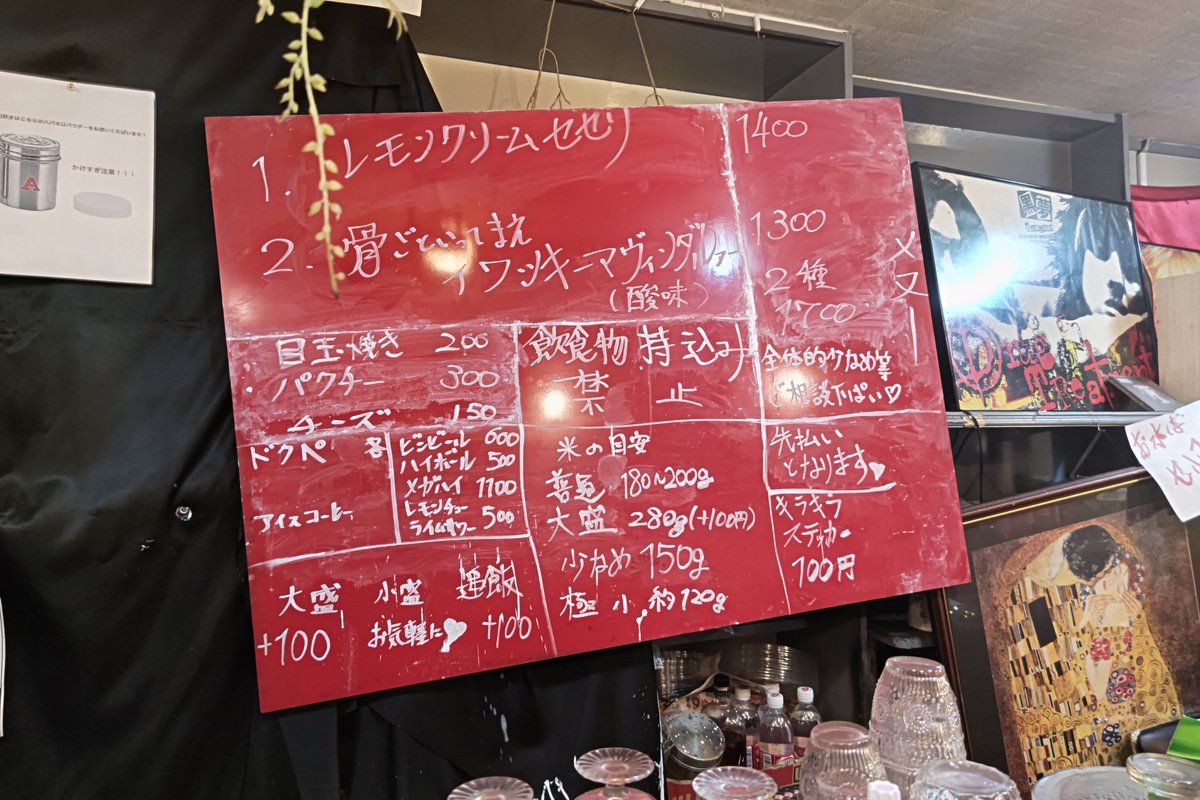 はこちらのハバネロパウダーをお使いくださいませ！
かけすぎ注意！！！
A
1. レモンクリームセセリ 1400
2. 骨ごといってまえ 1300
イワシキーマヴィンダルゥー
(酸味)
2種
1700
メニュー
目玉焼き 200
パクチー 300
チーズ 150
飲食物 持込み
禁止
全体的少なめ等
ご相談下ぱい♡
ドクペ
アイスコーヒー
ビンビール 600
ハイボール 500
メガハイ 1100
レモンチュー
ライムサワー 500
米の目安
普通 180~200g
大盛 280g(+100円)
少なめ 150g
極小 約120g
先払い
となります♥
キラキラ
ステッカー
100円
大盛 小盛 追飯
+100 お気軽に♥ +100
黒夢
お水は